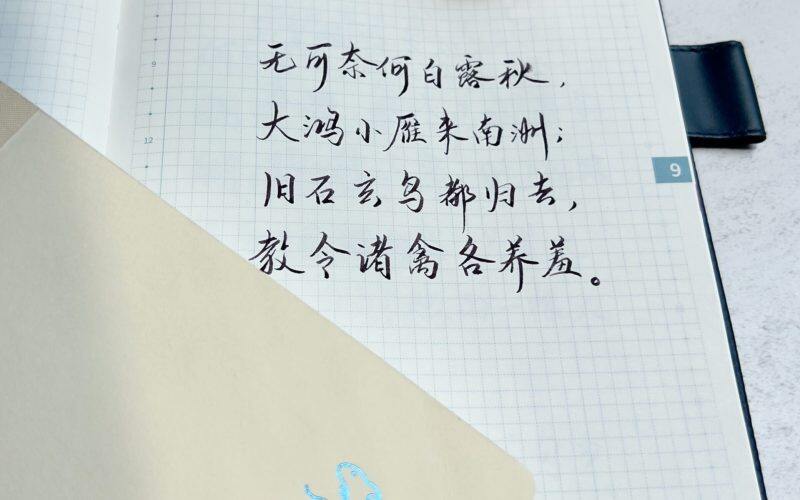 无可奈何白露秋，
大鸿小雁来南洲；
旧石玄鸟都归去，
教令诸禽各养羞。
9
9
12